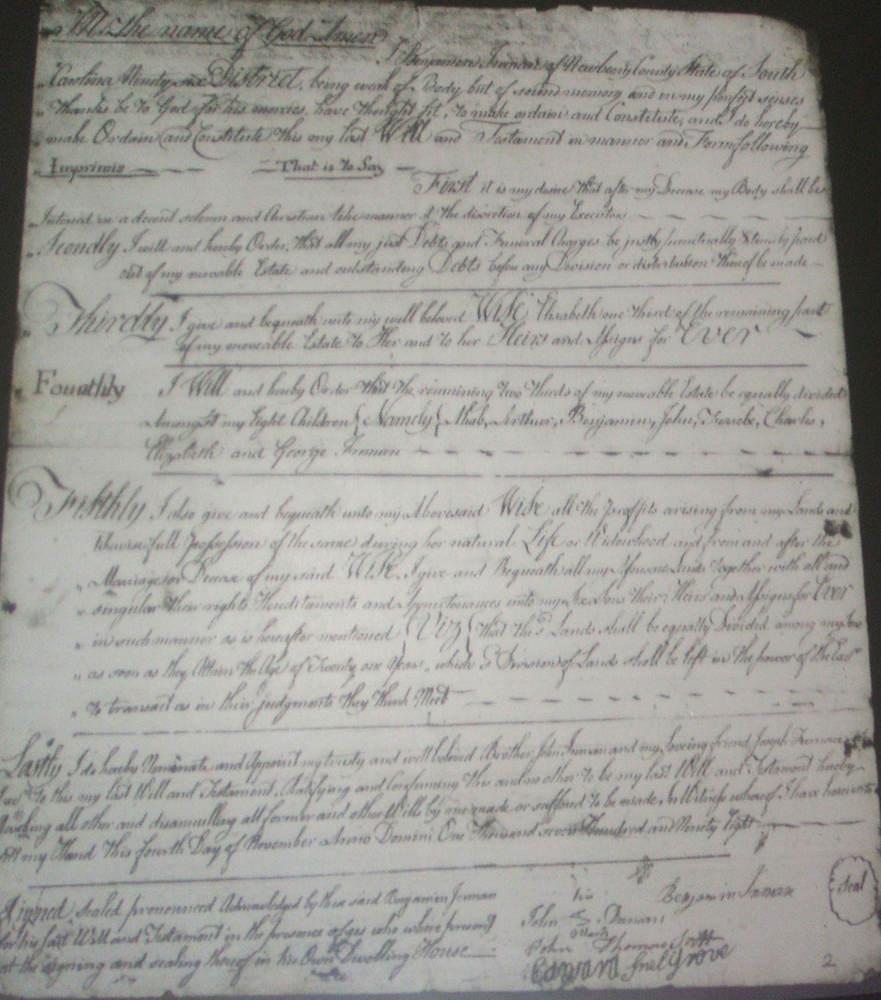 In the name of God Amen
I Benjamin Inman of Newberry County State of South
Carolina Ninety six District, being weak of Body but of sound memory and in my perfect senses
thanks be to God for his mercies, have thought fit, to make ordain and Constitute, and I do hereby
make Ordain and Constitute this my last Will and Testament in manner and Form following
Imprimis That is to Say
First it is my desire that after my Decease my Body shall be
Intered in a decent solemn and Christian like manner at the discretion of my Executors
Secondly I will and hereby Order, that all my just Debts and Funeral Charges be justly punctually & timely paid
out of my movable Estate and outstanding Debts before any Division or distribution thereof be made
Thirdly I give and bequeath unto my well beloved Wife Elizabeth one third of the remaining part
of my moveable Estate to Her and to her Heirs and Assigns for Ever
Fourthly I Will and hereby Order that the remaining two thirds of my moveable Estate be equally divided
Amongst my Eight Children { Namely { Ahab, Arthur, Benjamin, John, Charles,
Elizabeth and George Inman
Fifthly I also give and bequeath unto my Abovesaid Wife all the proffits arising from my Lands and
likewise full possession of the same during her natural Life or Widowhood and from and after the
Marriage or Decease of my said Wife, I give and Bequeath all my Lands together with all and
singular their rights Hereditaments and Appurtenances unto my Sons their Heirs and Assigns for Ever
in such manner as is hereafter mentioned (Viz { that the sd Lands shall be equally Divided among my
as soon as they Attain the Age of Twenty one Years, which sd Division of Lands shall be left in the power of the Exrs
to transact as in their judgments they think Meet
Lastly I do hereby Nominate and Appoint my trusty and well beloved Brother John Inman and my loving friend Joseph
Exrs to this my last Will and Testament, Ratifying and confirming this and no other to be my last Will and Testament hereby
Revoking all other and disannulling all former and other Wills by me made or suffered to be made, In Witness whereof I have hereunto
set my Hand this fourth Day of November Anno Domini One Thousand seven Hundred and Ninety Eight
Signed sealed pronounced Acknowledged by the said Benjamin Inman his Benjamin Inman Seal
for his last Will and Testament in the presence of us who where present John S. Duncan
at the signing and sealing thereof in his Own Dwelling House Mark
John Thomas
Edward Snelgrove
2